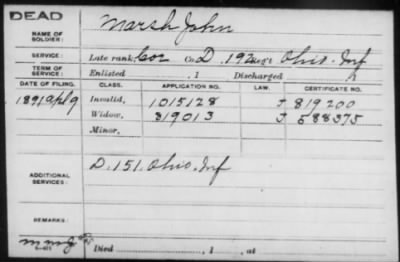 DEAD
NAME OF SOLDIER: Marsh John
SERVICE: Late rank, Cor Co. D, 192 Reg't Ohio Inf
TERM OF SERVICE: Enlisted , 1 Discharged , 1
DATE OF FILING. CLASS. APPLICATION NO. LAW. CERTIFICATE NO.
1891 Apl 9 Invalid, 1015128 J 819200
Widow, 819013 J 588375
Minor,
ADDITIONAL SERVICES: D. 151. Ohio. Inf
REMARKS:
Died , 1 , at